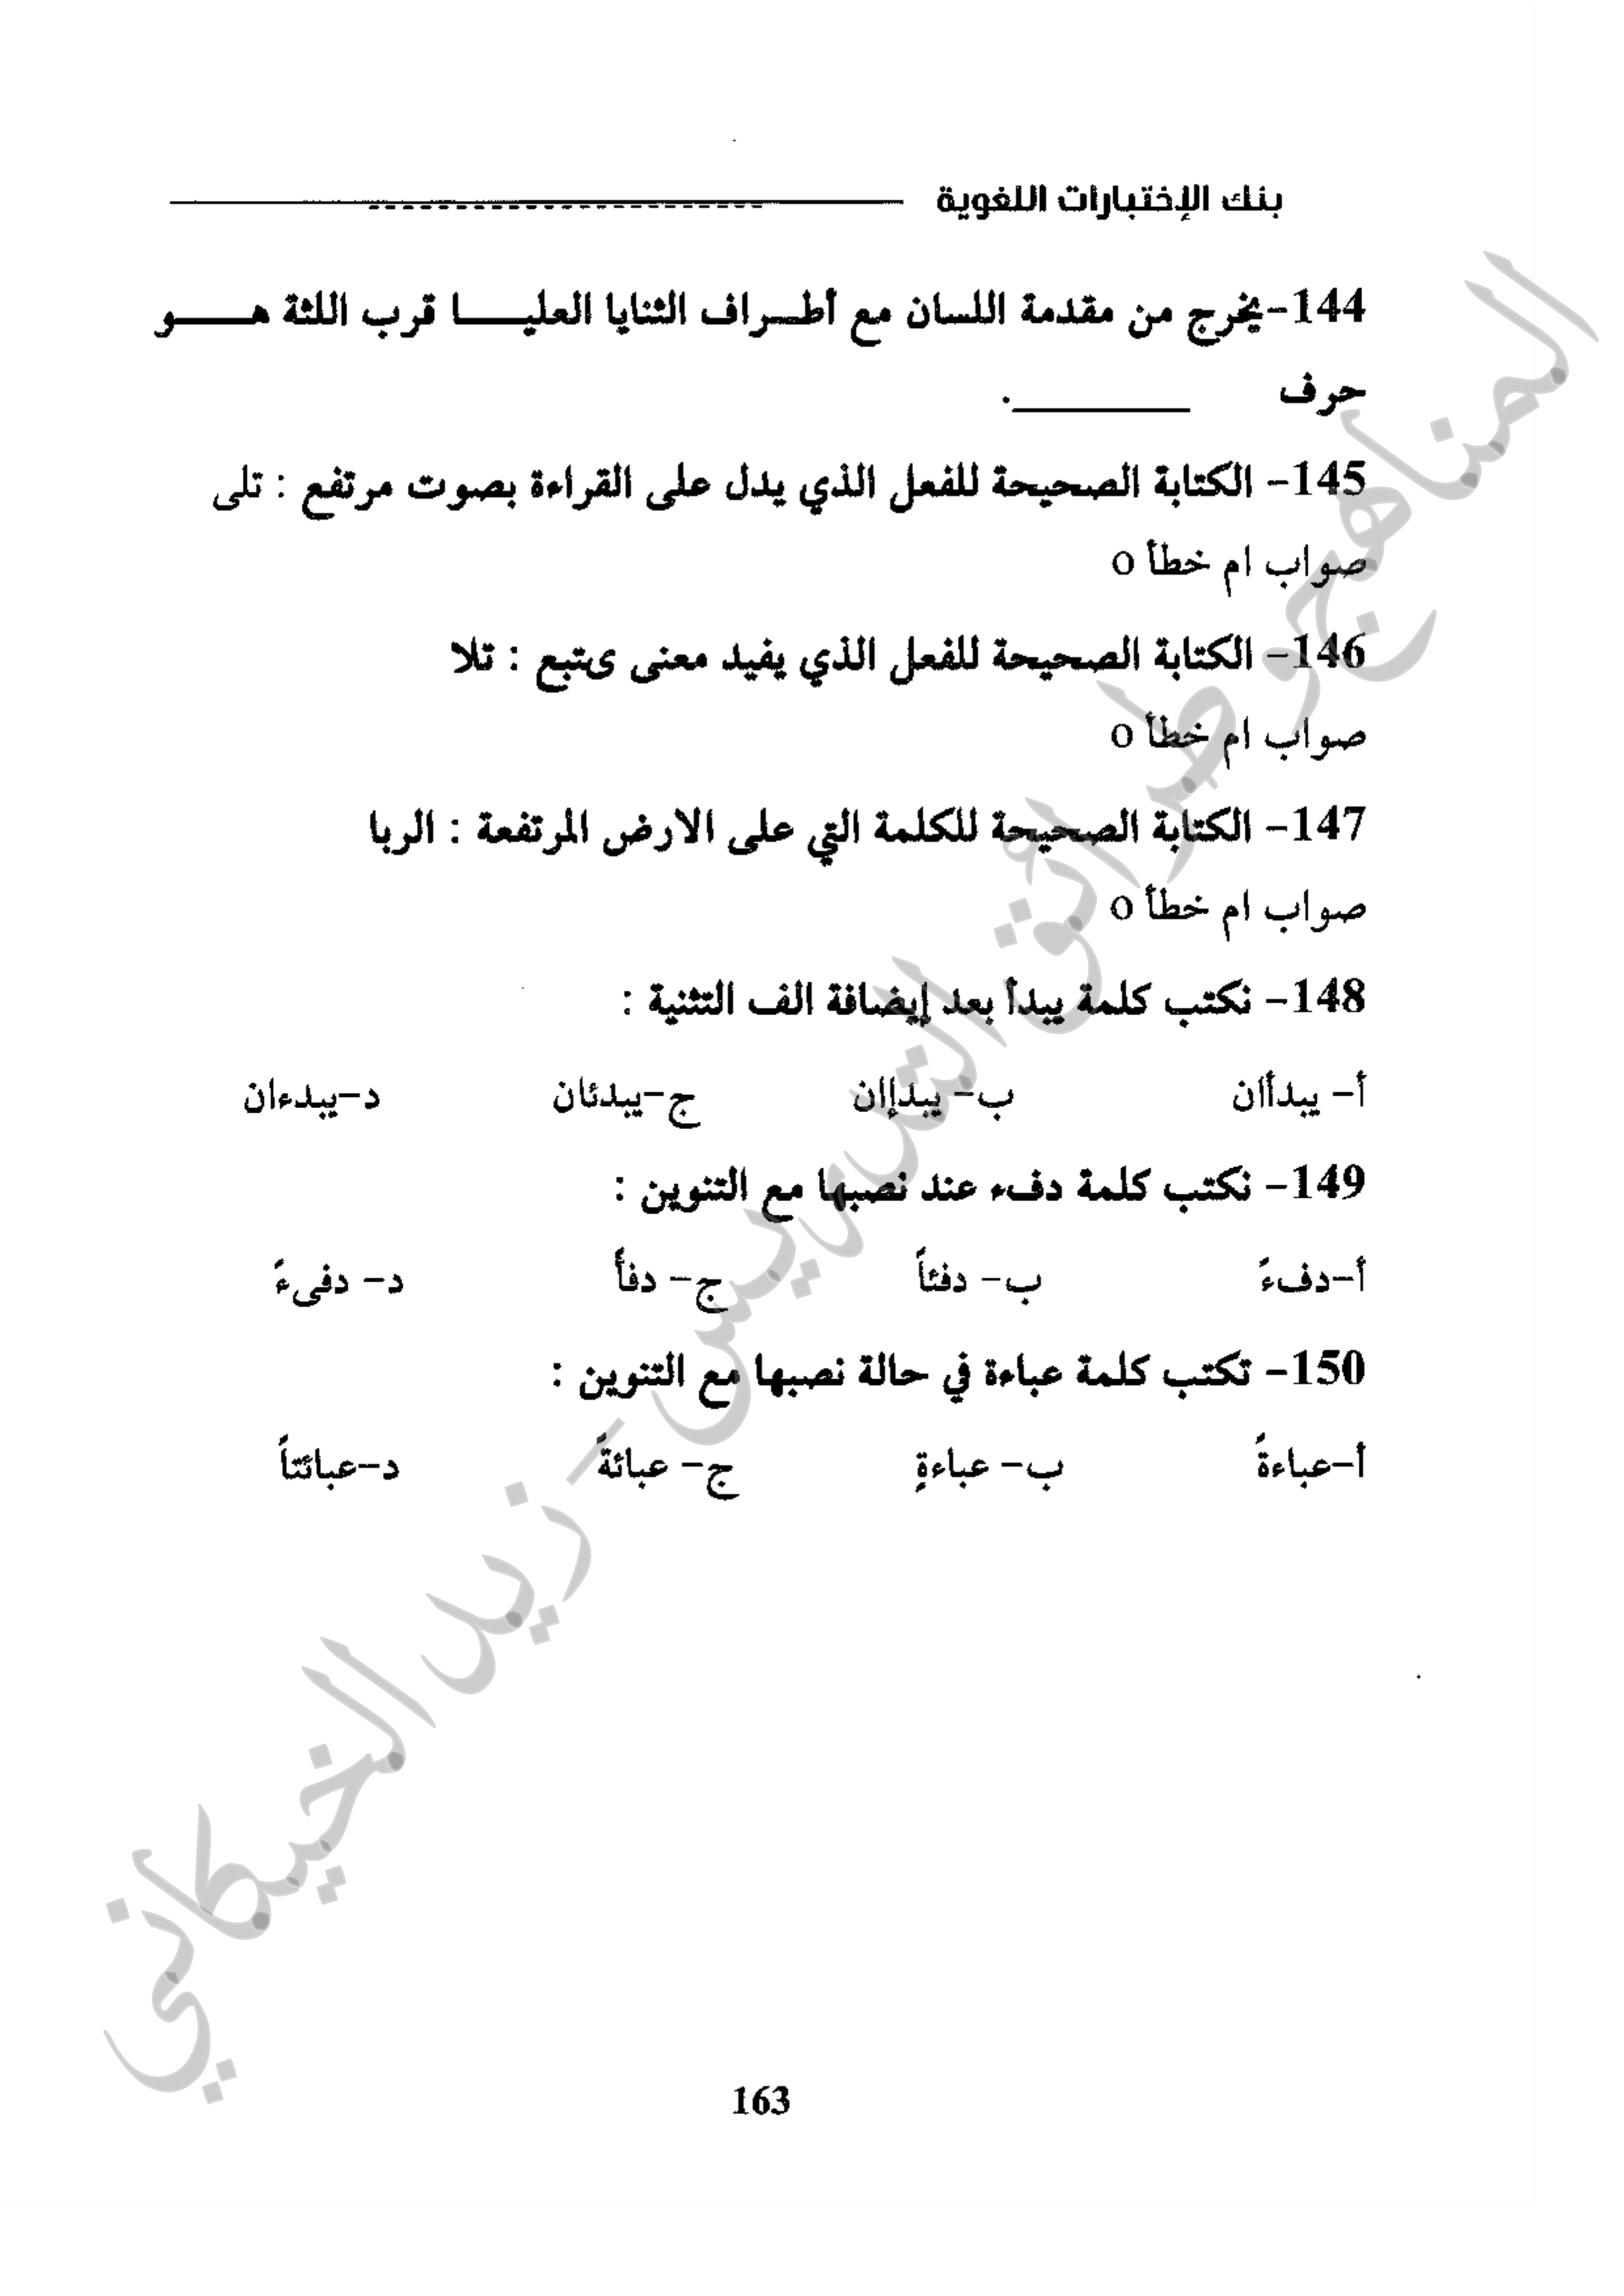 بنك الإختبارات اللغوية
144-يخرج من مقدمة اللسان مع أطـراف الثنايا العليـــا قرب اللثة هـــو
حرف ________.
145- الكتابة الصحيحة للفعل الذي يدل على القراءة بصوت مرتفع : تلى
صواب ام خطأ o
146- الكتابة الصحيحة للفعل الذي يفيد معنى ىتبع : تلا
صواب ام خطأ o
147- الكتابة الصحيحة للكلمة التي على الارض المرتفعة : الربا
صواب ام خطأ o
148- نكتب كلمة يبدأ بعد إيضافة الف التثنية :
أ- يبدأان ب- يبدإان ج-يبدئان د-يبدءان
149- نكتب كلمة دفء عند نصبها مع التنوين :
أ-دفءً ب- دفئاً ج- دفأً د- دفىءً
150- تكتب كلمة عباءة في حالة نصبها مع التنوين :
أ-عباءةً ب- عباءةٍ ج- عبائةً د-عبائتاً
المناهج وطرائق التدريس - زيد الخيكاني
163